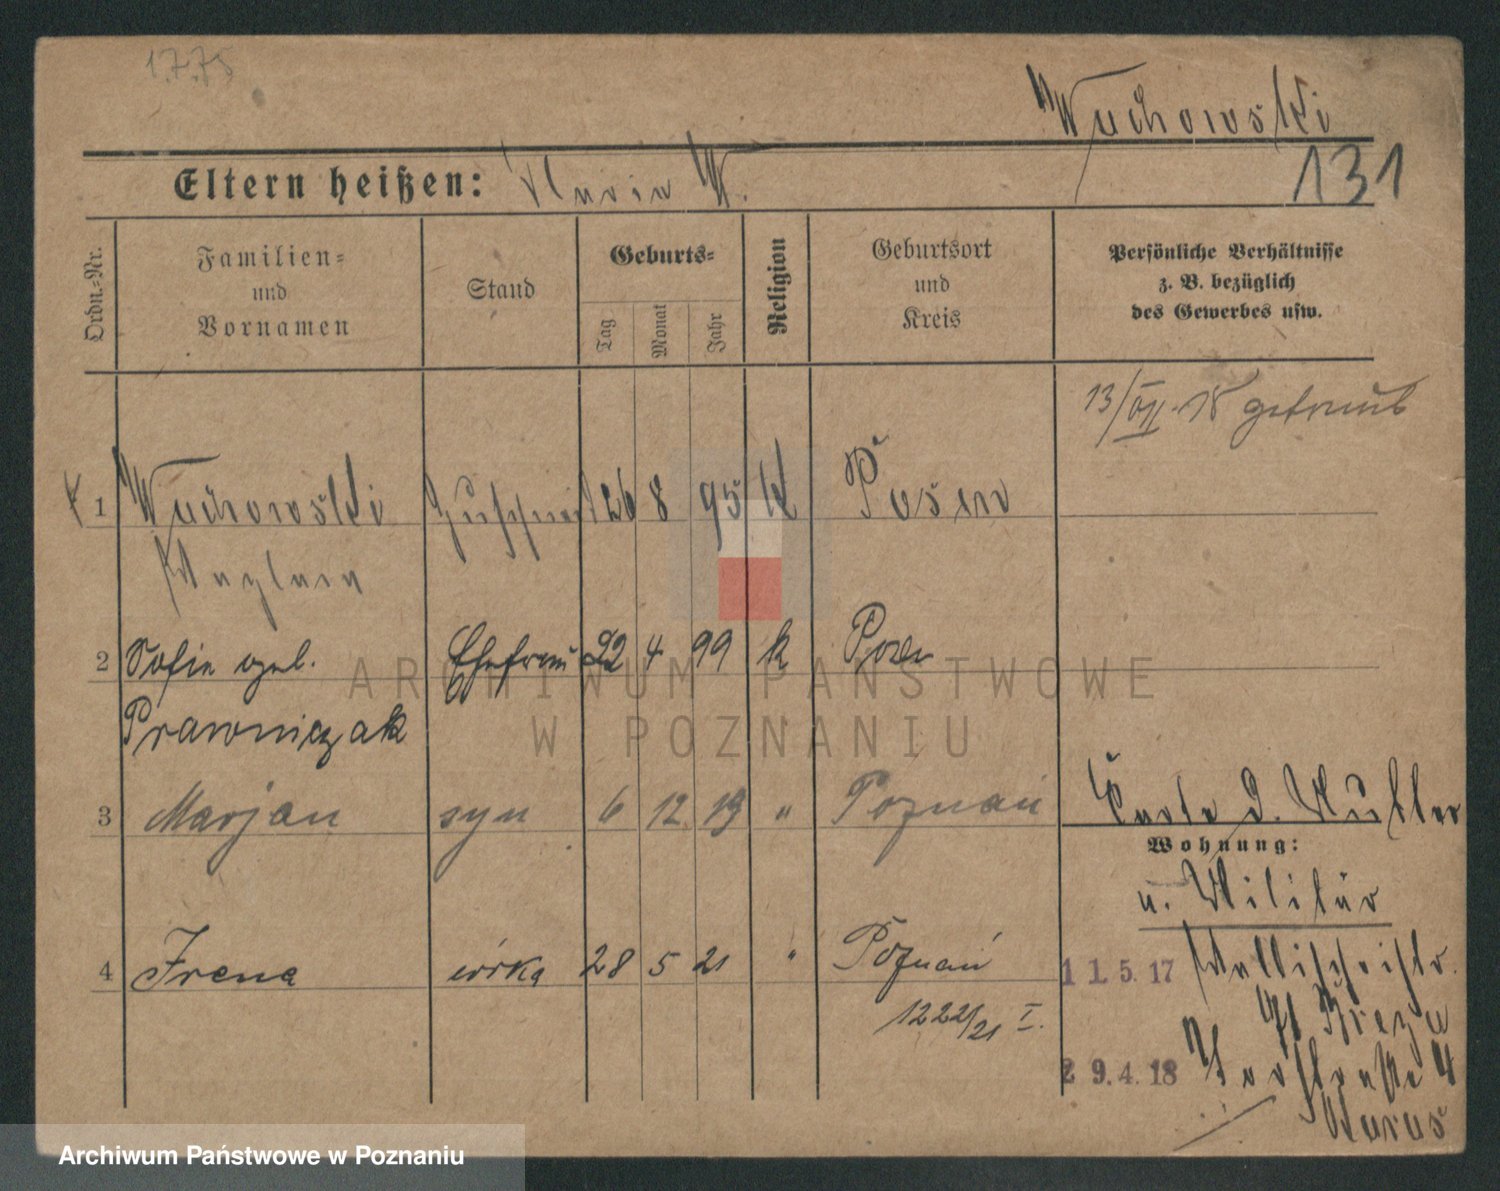 1.7.75
Wuchowski
131
Eltern heißen: Maria W.
Ordn.-Nr.
Familien-
und
Vornamen
Stand
Geburts-
Tag
Monat
Jahr
Religion
Geburtsort
und
Kreis
Persönliche Verhältnisse
z. B. bezüglich
des Gewerbes usw.
13/VII. 18 getraut
1 Wuchowski 26 8 95 K Posen
2 Sofie geb. Ehefrau 22 4 99 k Posen
Prawniczak
3 Marjan syn 6 12 19 " Poznań
Karte d. Mutter
Wohnung:
u. Militär
4 Irena córka 28 5 21 " Poznań
1222/21 I.
11.5.17 Wallischeistr.
29.4.18
ARCHIWUM PAŃSTWOWE
W POZNANIU
Archiwum Państwowe w Poznaniu